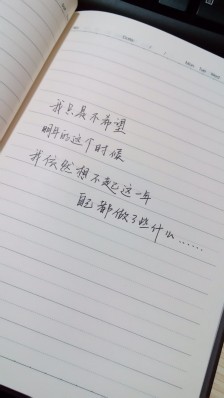 我只是不希望
明年的这个时候
我依然想不起这一年
自己都做了些什么……